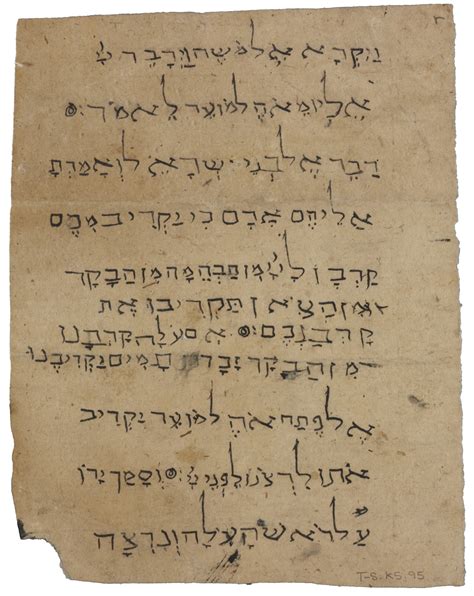 ויקרא אל משה וידבר יי
אליו מאהל מועד לאמר:
דבר אל בני ישראל ואמרת
אליהם אדם כי יקריב מכם
קרבן ליי מן הבהמה מן הבקר
ומן הצאן תקריבו את
קרבנכם: אם עלה קרבנו
מן הבקר זכר תמים יקריבנו
אל פתח אהל מועד יקריב
אתו לרצנו לפני יי: וסמך ידו
על ראש העלה ונרצה
T-S. K5.95